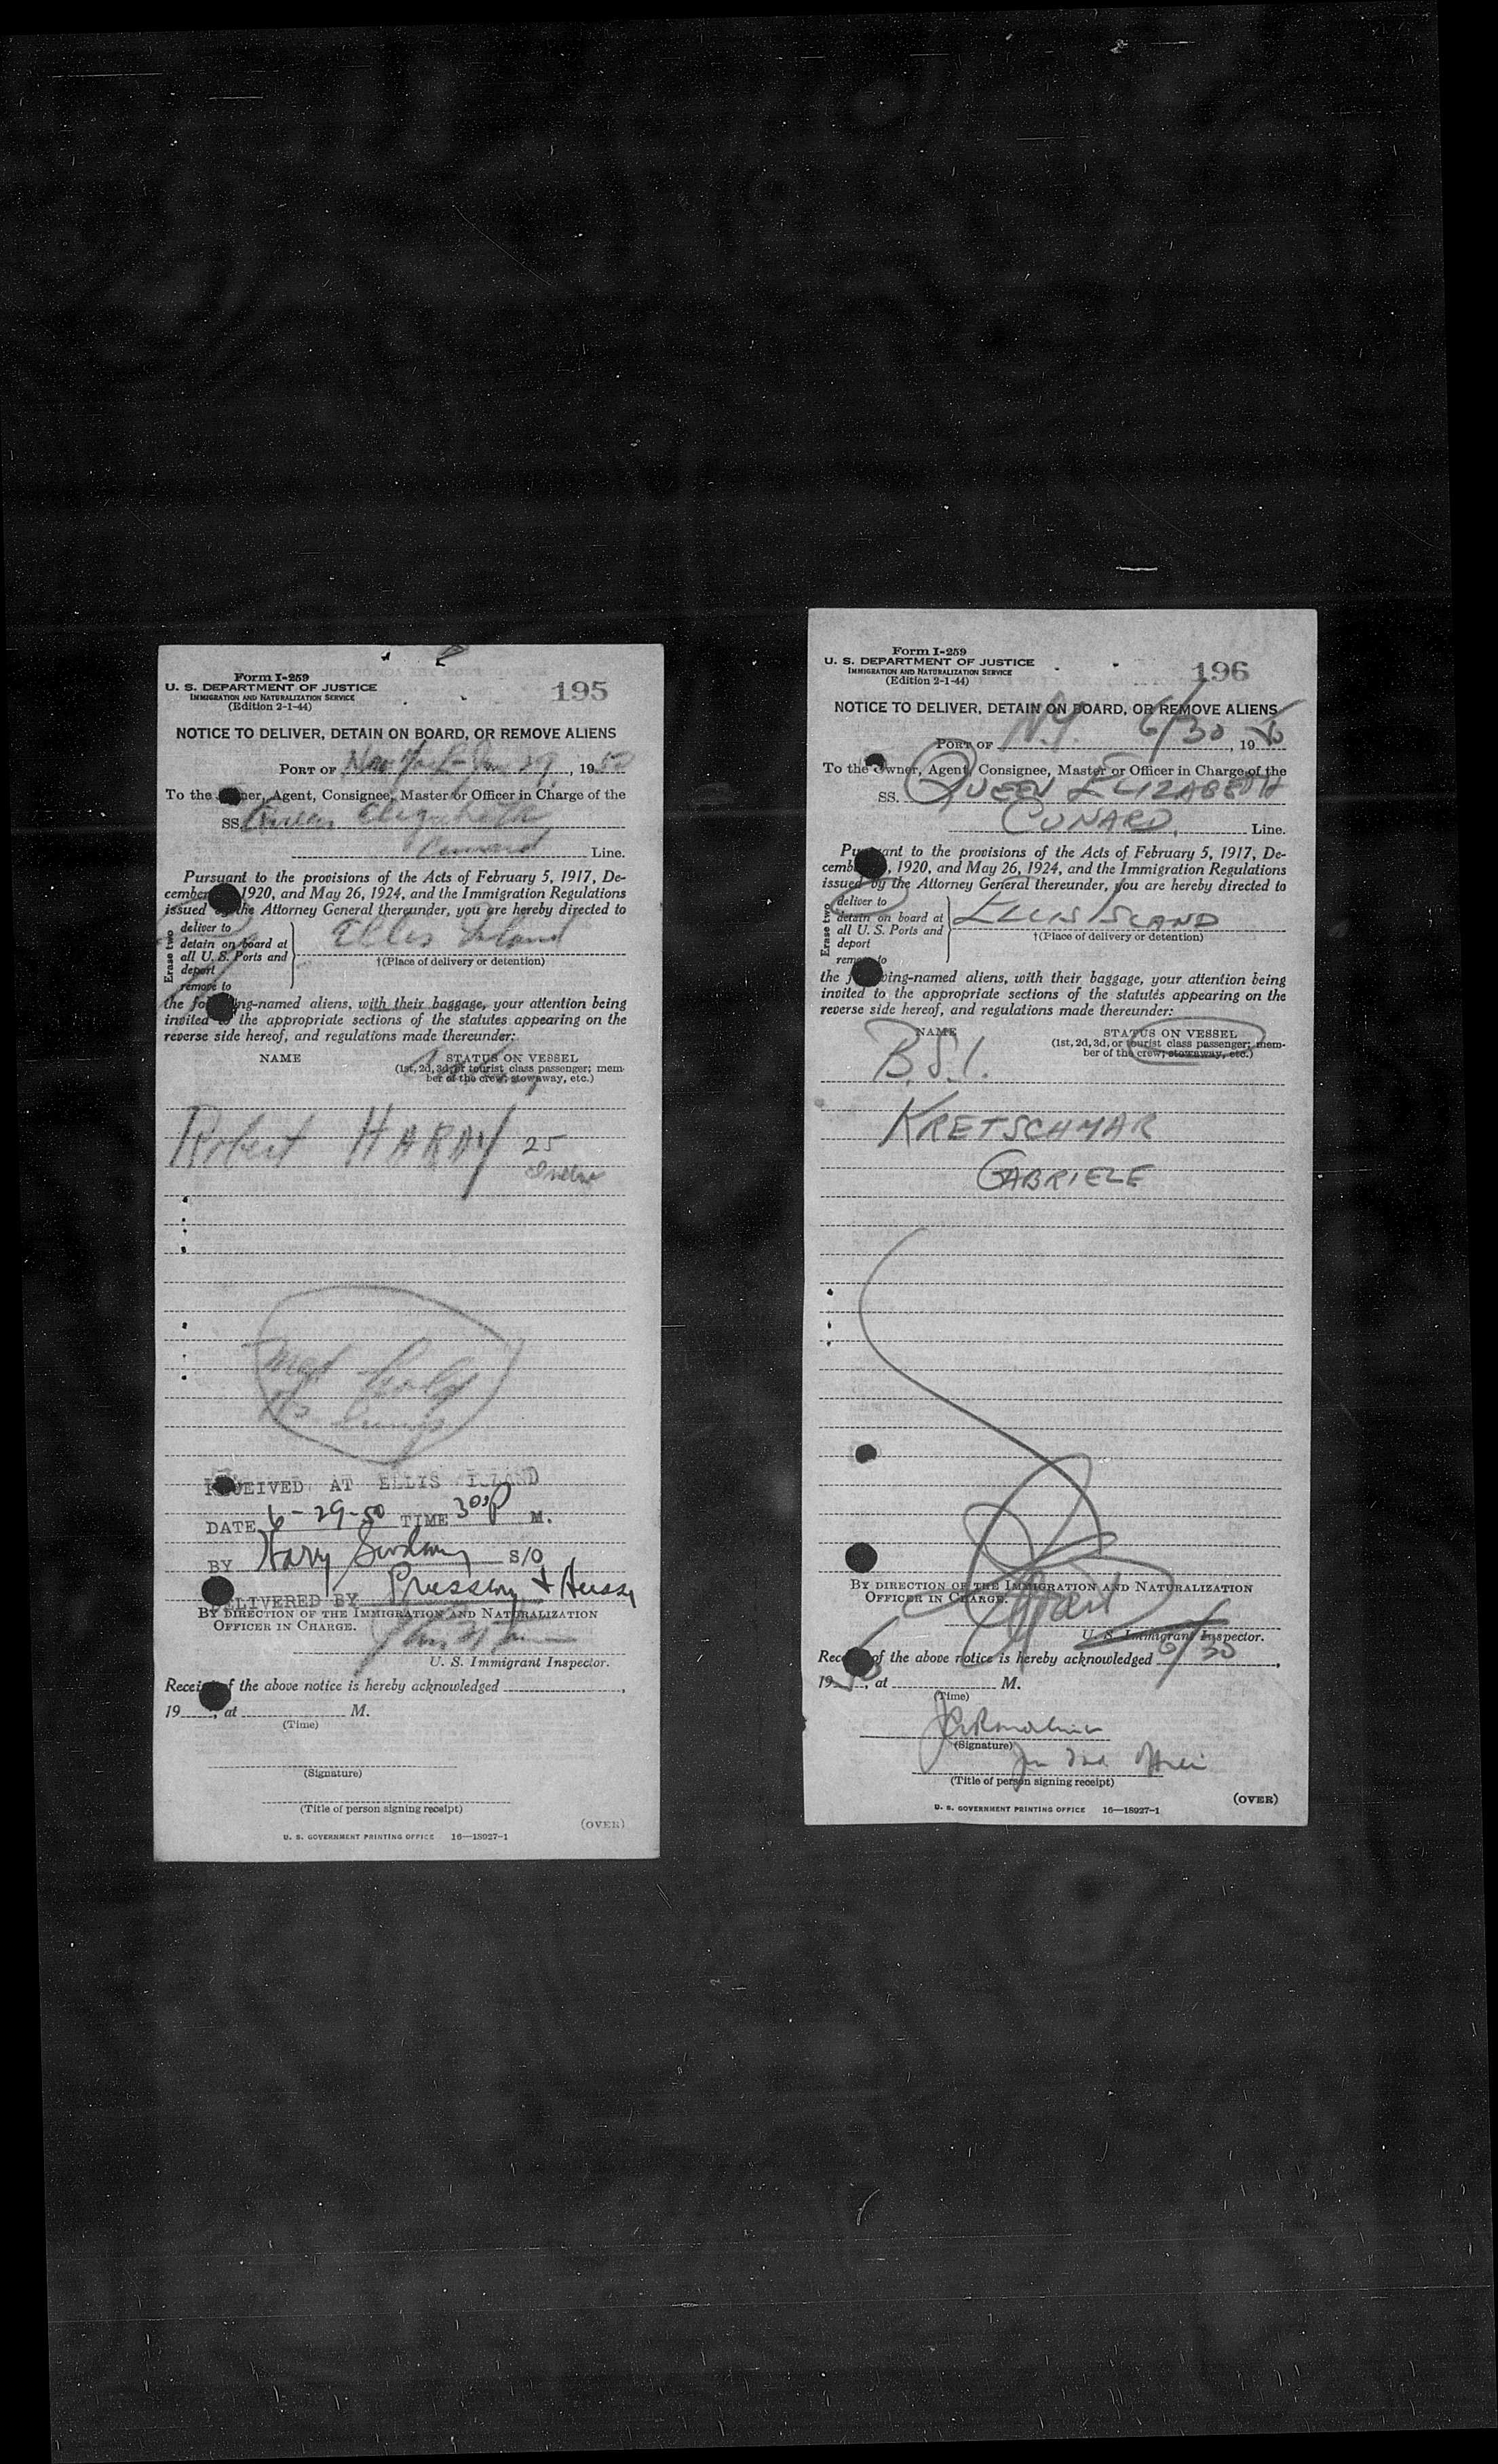 Form I-259
U. S. DEPARTMENT OF JUSTICE
IMMIGRATION AND NATURALIZATION SERVICE
(Edition 2-1-44)
195
NOTICE TO DELIVER, DETAIN ON BOARD, OR REMOVE ALIENS
PORT OF New York 29, 1950
To the Owner, Agent, Consignee, Master or Officer in Charge of the
SS. Queen Elizabeth
Cunard Line.
Pursuant to the provisions of the Acts of February 5, 1917, De-
cember 1920, and May 26, 1924, and the Immigration Regulations
issued by the Attorney General thereunder, you are hereby directed to
Erase two
deliver to
detain on board at
all U. S. Ports and
deport
remove to
Ellis Island
†(Place of delivery or detention)
the following-named aliens, with their baggage, your attention being
invited to the appropriate sections of the statutes appearing on the
reverse side hereof, and regulations made thereunder:
NAME
STATUS ON VESSEL
(1st, 2d, 3d, or tourist class passenger; mem-
ber of the crew, stowaway, etc.)
Robert HARDY 25
Med Hold
RECEIVED AT ELLIS ISLAND
DATE 6-29-50 TIME 3 00 P M.
BY Harry S/O
DELIVERED BY
BY DIRECTION OF THE IMMIGRATION AND NATURALIZATION
OFFICER IN CHARGE.
U. S. Immigrant Inspector.
Receipt of the above notice is hereby acknowledged
19 , at M.
(Time)
(Signature)
(Title of person signing receipt)
(OVER)
U. S. GOVERNMENT PRINTING OFFICE 16—18027-1
Form I-259
U. S. DEPARTMENT OF JUSTICE
IMMIGRATION AND NATURALIZATION SERVICE
(Edition 2-1-44)
196
NOTICE TO DELIVER, DETAIN ON BOARD, OR REMOVE ALIENS
PORT OF N.Y. 6/30, 1950
To the Owner, Agent, Consignee, Master or Officer in Charge of the
SS. QUEEN ELIZABETH
CUNARD Line.
Pursuant to the provisions of the Acts of February 5, 1917, De-
cember , 1920, and May 26, 1924, and the Immigration Regulations
issued by the Attorney General thereunder, you are hereby directed to
Erase two
deliver to
detain on board at
all U. S. Ports and
deport
remove to
ELLIS ISLAND
†(Place of delivery or detention)
the following-named aliens, with their baggage, your attention being
invited to the appropriate sections of the statutes appearing on the
reverse side hereof, and regulations made thereunder:
NAME
STATUS ON VESSEL
(1st, 2d, 3d, or tourist class passenger; mem-
ber of the crew; stowaway, etc.)
B.S.I.
KRETSCHMAR
GABRIELE
BY DIRECTION OF THE IMMIGRATION AND NATURALIZATION
OFFICER IN CHARGE.
U. S. Immigrant Inspector.
Receipt of the above notice is hereby acknowledged 6/30,
1950, at M.
(Time)
(Signature)
(Title of person signing receipt)
(OVER)
U. S. GOVERNMENT PRINTING OFFICE 16—18027-1